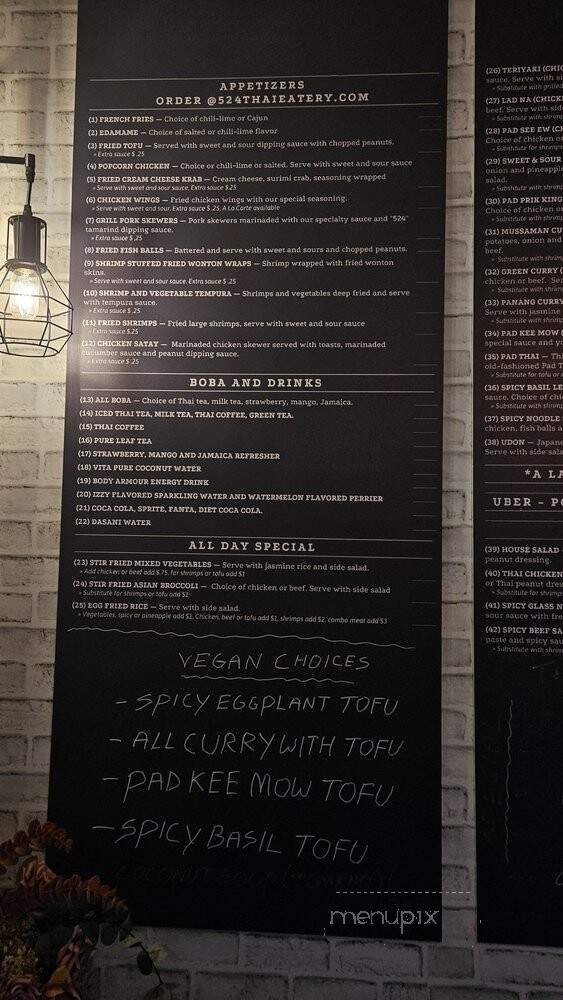 APPETIZERS
ORDER @524THAIEATERY.COM
(1) FRENCH FRIES — Choice of chili-lime or Cajun
(2) EDAMAME — Choice of salted or chili-lime flavor
(3) FRIED TOFU — Served with sweet and sour dipping sauce with chopped peanuts.
» Extra sauce $.25
(4) POPCORN CHICKEN — Choice or chili-lime or salted. Serve with sweet and sour sauce
(5) FRIED CREAM CHEESE KRAB — Cream cheese, surimi crab, seasoning wrapped
» Serve with sweet and sour. Extra sauce $.25
(6) CHICKEN WINGS — Fried chicken wings with our special seasoning.
» Serve with sweet and sour. Extra sauce $ .25. A La Carte available
(7) GRILL PORK SKEWERS — Pork skewers marinaded with our specialty sauce and "524"
tamarind dipping sauce.
» Extra sauce $ .25
(8) FRIED FISH BALLS — Battered and serve with sweet and sours and chopped peanuts.
(9) SHRIMP STUFFED FRIED WONTON WRAPS — Shrimp wrapped with fried wonton
skins.
» Serve with sweet and sour sauce. Extra sauce $ .25
(10) SHRIMP AND VEGETABLE TEMPURA — Shrimps and vegetables deep fried and serve
with tempura sauce.
» Extra sauce $.25
(11) FRIED SHRIMPS — Fried large shrimps, serve with sweet and sour sauce
» Extra sauce $.25
(12) CHICKEN SATAY — Marinaded chicken skewer served with toasts, marinaded
cucumber sauce and peanut dipping sauce.
» Extra sauce $ .25
BOBA AND DRINKS
(13) ALL BOBA — Choice of Thai tea, milk tea, strawberry, mango, Jamaica.
(14) ICED THAI TEA, MILK TEA, THAI COFFEE, GREEN TEA.
(15) THAI COFFEE
(16) PURE LEAF TEA
(17) STRAWBERRY, MANGO AND JAMAICA REFRESHER
(18) VITA PURE COCONUT WATER
(19) BODY ARMOUR ENERGY DRINK
(20) IZZY FLAVORED SPARKLING WATER AND WATERMELON FLAVORED PERRIER
(21) COCA COLA, SPRITE, FANTA, DIET COCA COLA.
(22) DASANI WATER
ALL DAY SPECIAL
(23) STIR FRIED MIXED VEGETABLES — Serve with jasmine rice and side salad.
» Add chicken or beef add $.75, for shrimps or tofu add $1
(24) STIR FRIED ASIAN BROCCOLI — Choice of chicken or beef. Serve with side salad
» Substitute for shrimps or tofu add $1
(25) EGG FRIED RICE — Serve with side salad.
» Vegetables, spicy or pineapple add $1. Chicken, beef or tofu add $1, shrimps add $2, combo meat add $3
VEGAN CHOICES
- SPICY EGGPLANT TOFU
- ALL CURRY WITH TOFU
- PAD KEE MOW TOFU
- SPICY BASIL TOFU
(26) TERIYAKI (CHIC
sauce. Serve with si
» Substitute with grilled
(27) LAD NA (CHICKE
beef. Serve with side
» Substitute with shrim
(28) PAD SEE EW (CH
Choice of chicken or
» Substitute for shrimps
(29) SWEET & SOUR
onion and pineapple
salad.
» Substitute with shrimp
(30) PAD PRIK KING
Choice of chicken or
» Substitute with shrimp
(31) MUSSAMAN CU
potatoes, onion and
beef.
» Substitute with shrimp
(32) GREEN CURRY (
chicken or beef. Ser
» Substitute with shrimp
(33) PANANG CURRY
Serve with jasmine
» Substitute with shrimp
(34) PAD KEE MOW (
special sauce and yo
(35) PAD THAI — Thi
old-fashioned Pad T
» Substitute for tofu or
(36) SPICY BASIL LE
sauce. Choice of chic
» Substitute with shrimp
(37) SPICY NOODLE
chicken, fish balls a
(38) UDON — Japane
Serve with side sala
*A LA
UBER - PO
(39) HOUSE SALAD
or peanut dressing.
(40) THAI CHICKEN
Thai peanut dres
» Substitute for shrimp
(41) SPICY GLASS N
sour sauce with fre
(42) SPICY BEEF SA
paste and spicy sau
» Substitute with shrim
menupix